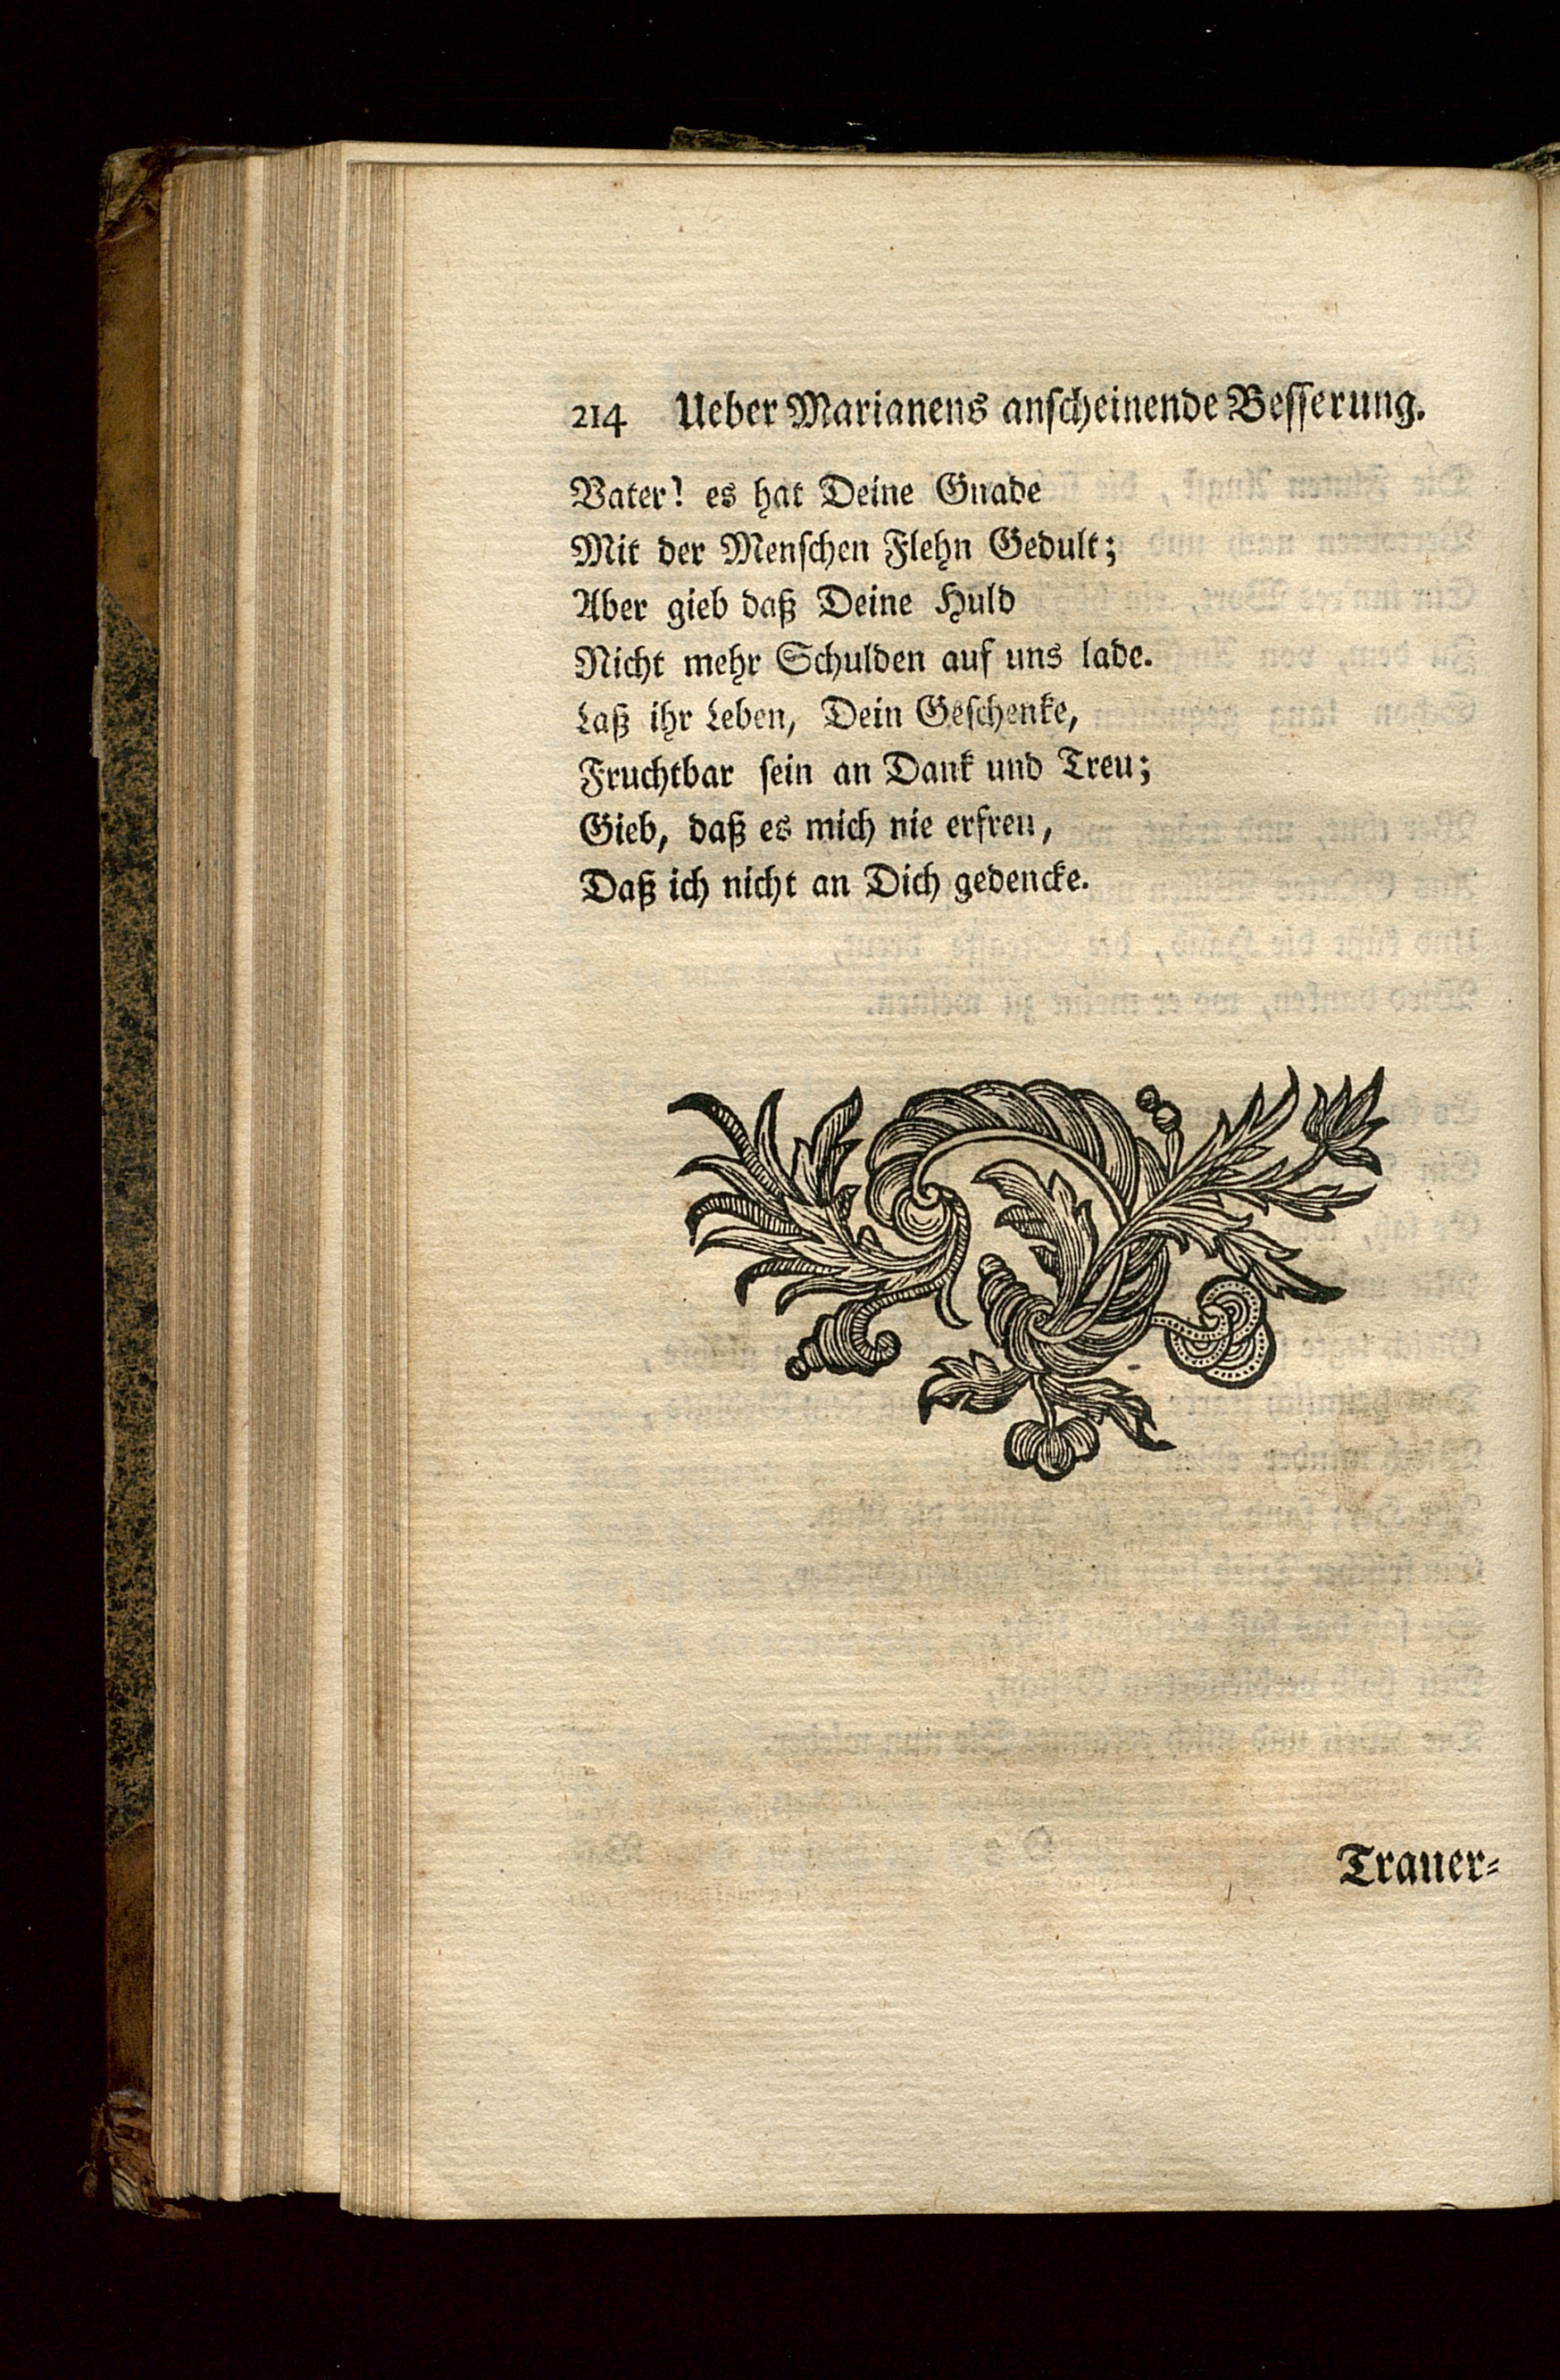 214 Ueber Marianens anſcheinende Beſſerung.
Vater! es hat Deine Gnade
Mit der Menſchen Flehn Gedult;
Aber gieb daß Deine Huld
Nicht mehr Schulden auf uns lade.
Laß ihr Leben, Dein Geſchenke,
Fruchtbar ſein an Dank und Treu;
Gieb, daß es mich nie erfreu,
Daß ich nicht an Dich gedencke.
Trauer⸗